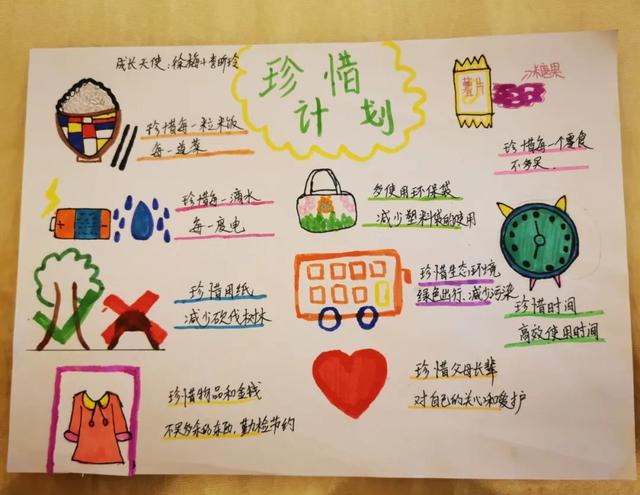 成长天使:徐梅+李昕玲
珍惜
计划
薯片
糖果
珍惜每一粒米饭
每一道菜
珍惜每一个零食
不多买
珍惜每一滴水
每一度电
多使用环保袋
减少塑料袋的使用
珍惜用纸
减少砍伐树木
珍惜生态环境
绿色出行、减少污染
珍惜时间
高效使用时间
珍惜物品和金钱
不买多余的东西,勤检节约
珍惜父母长辈
对自己的关心和爱护